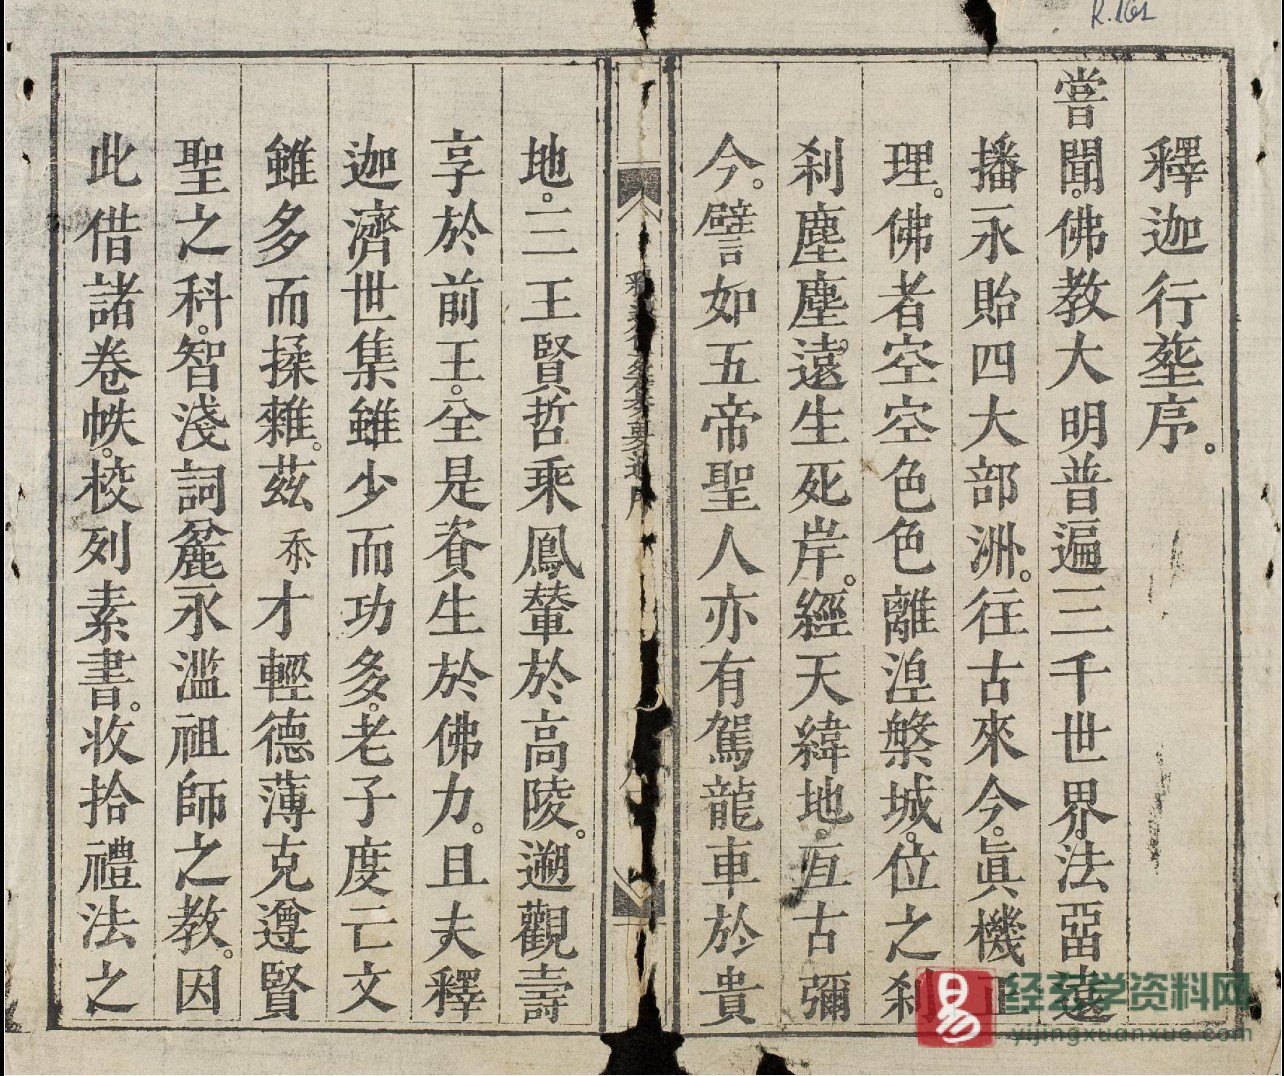 R.161
釋迦行塟序。
嘗聞。佛教大明普遍三千世界。法𤱶遠
播永貽四大部洲。往古來今。眞機正
理。佛者空空色色離湟槃城。位之刹
刹塵塵。遠生死岸。經天緯地。亙古彌
今。譬如五帝聖人亦有駕龍車於貴
地。三王賢哲乘鳳輦於高陵。遡觀壽
享於前王。全是資生於佛力。且夫釋
迦濟世集雖少而功多。老子度亡文
雖多而揉雜。茲忝才輕德薄克遵賢
聖之科。智淺詞麄永滥祖師之教。因
此借諸卷帙。校列素書。收拾禮法之
经玄学资料网
yijingxuanxue.com
易